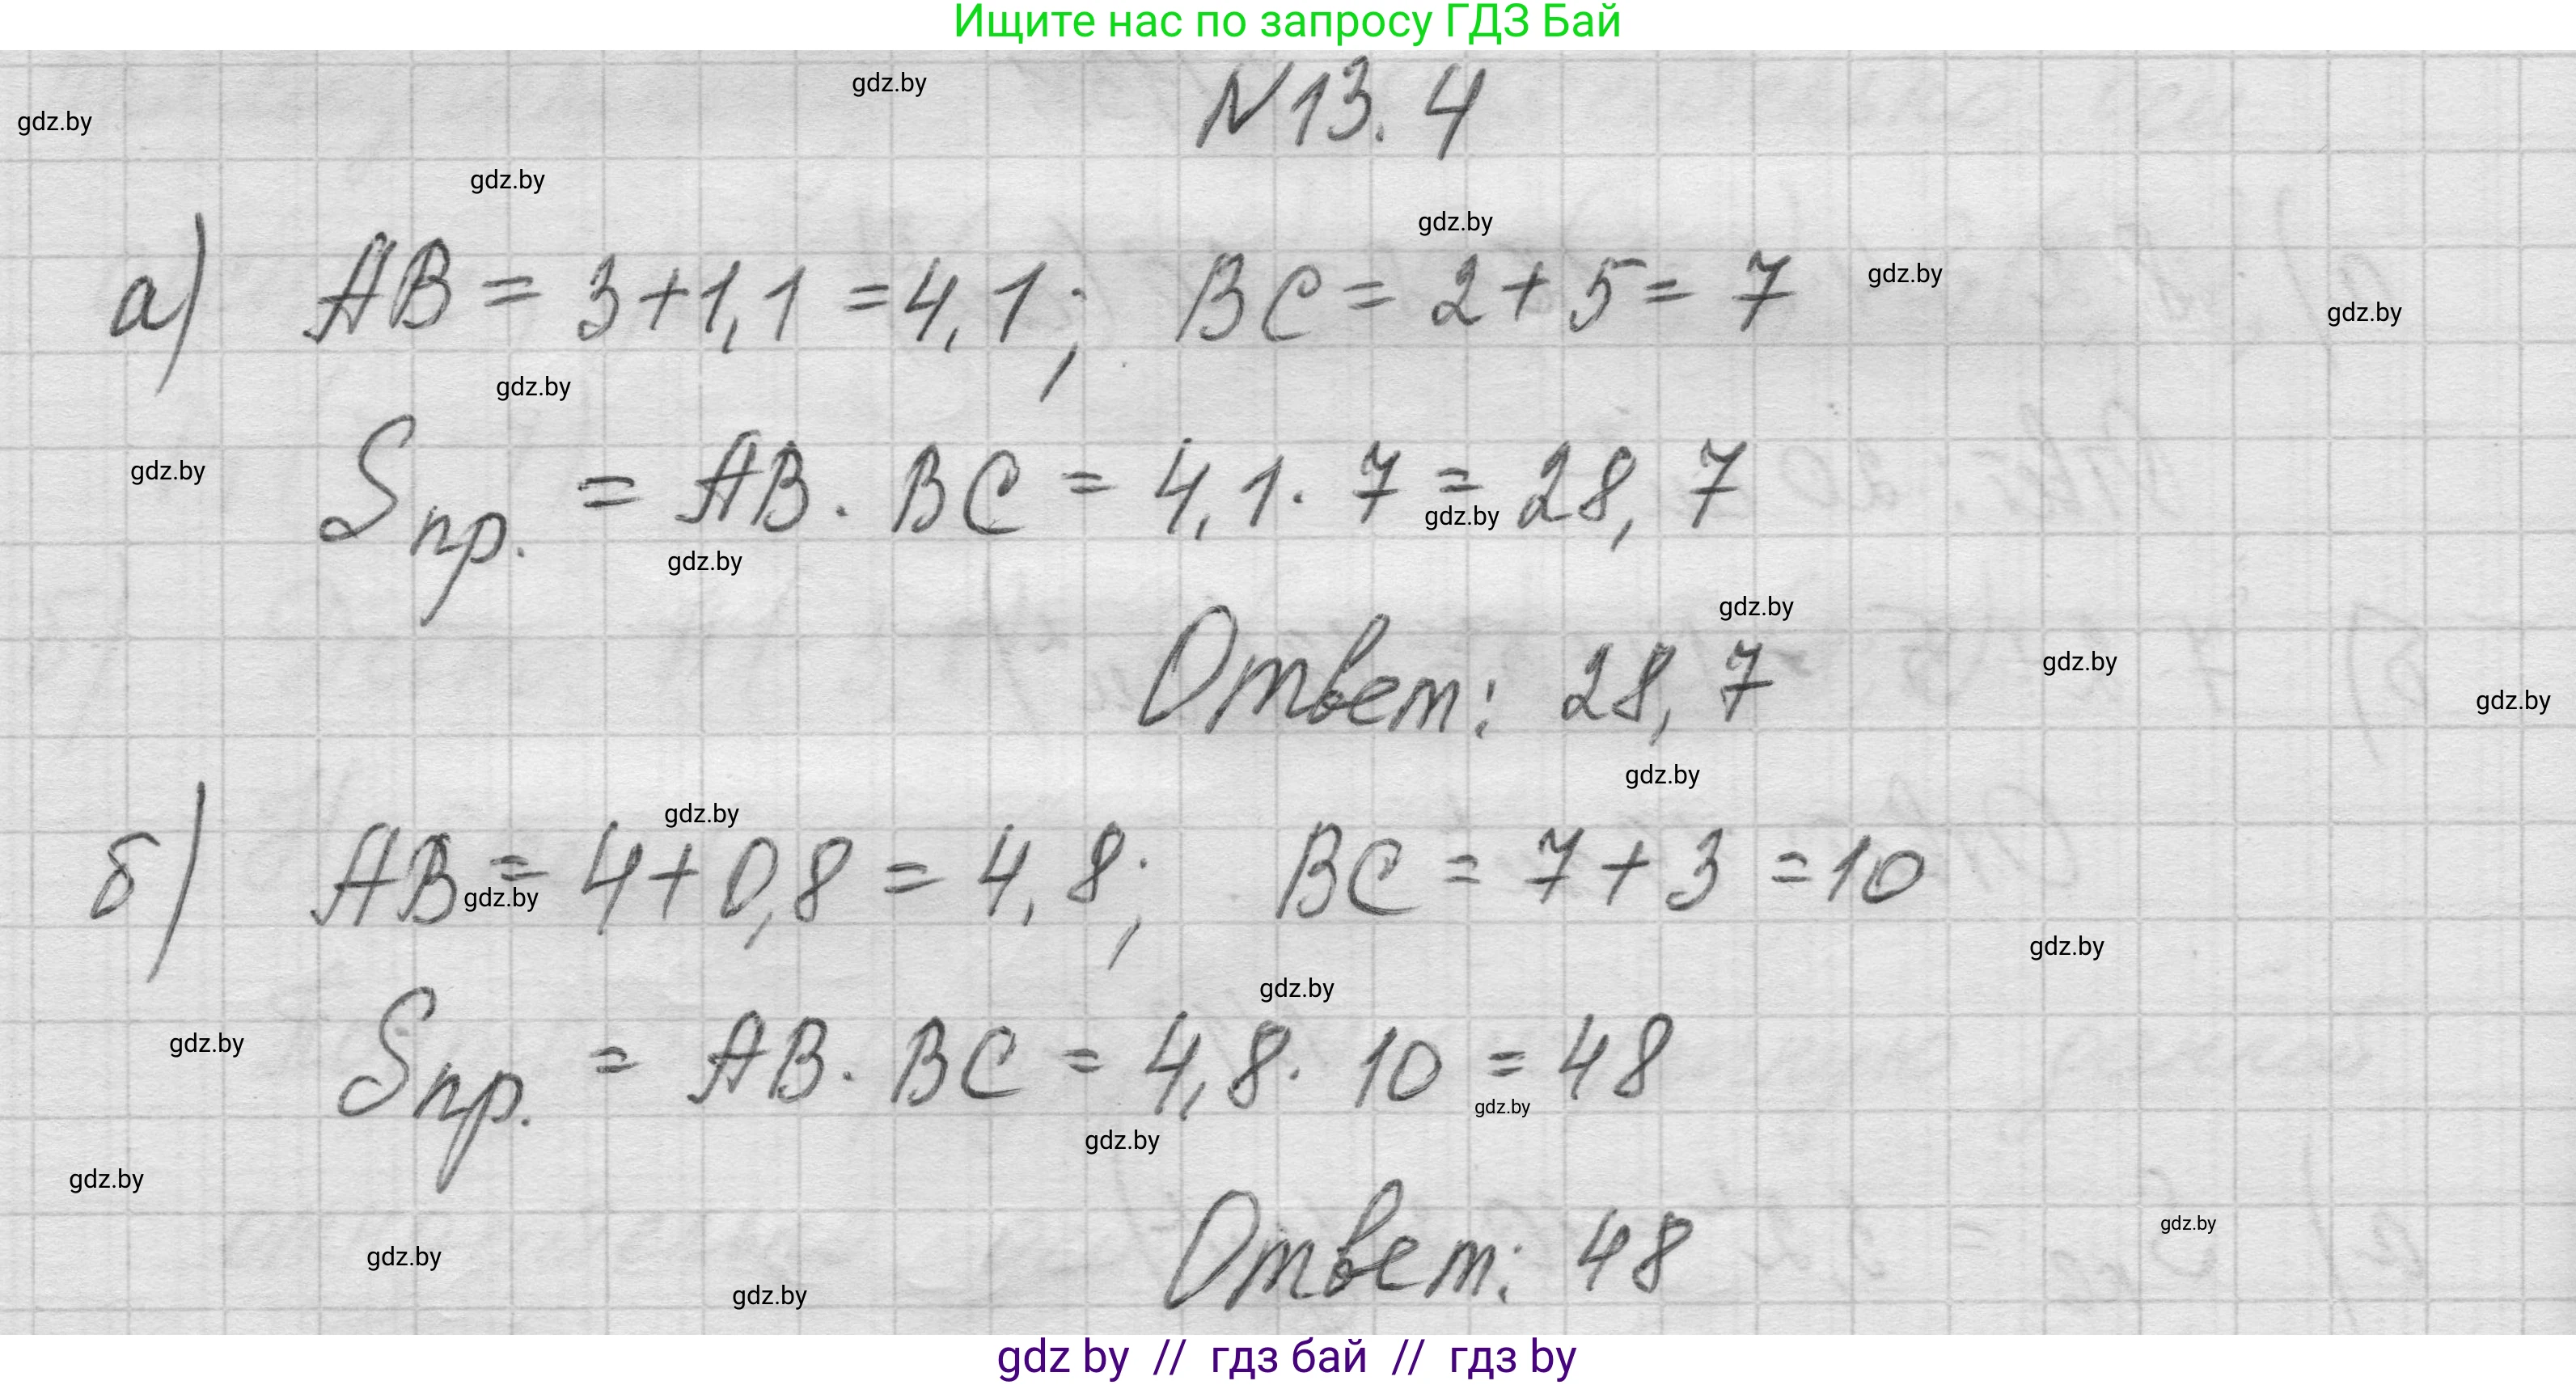 Ищите нас по запросу ГДЗ Бай
gdz.by
N13.4
gdz.by
gdz.by
gdz.by
а) AB = 3+1,1 =4,1; BC = 2+5= 7
gdz.by
gdz.by
gdz.by
gdz.by
Sпр. = AB · BC = 4,1 · 7 = 28,7
gdz.by
gdz.by
gdz.by
Ответ: 28,7
gdz.by
gdz.by
gdz.by
gdz.by
б) AB = 4+0,8 = 4,8; BC = 7+3 =10
gdz.by
gdz.by
gdz.by
gdz.by
Sпр. = AB · BC = 4,8 · 10 = 48
gdz.by
gdz.by
gdz.by
gdz.by
Ответ: 48
gdz.by
gdz.by
gdz by // гдз бай // гдз by